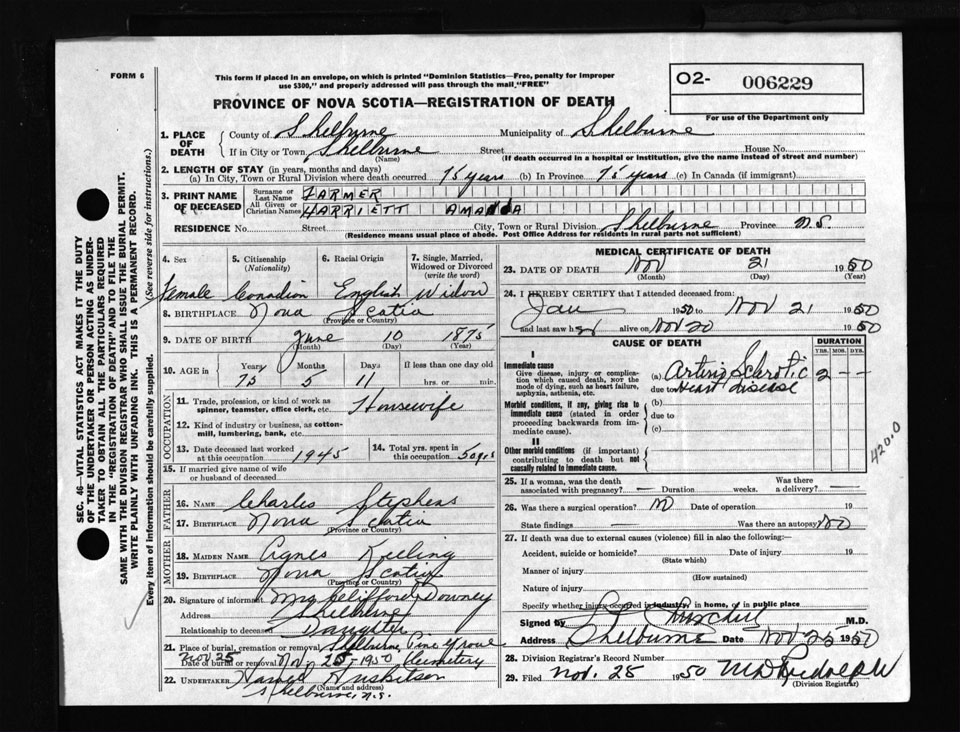 FORM 6
This form if placed in an envelope, on which is printed "Dominion Statistics—Free, penalty for improper
use $300," and properly addressed will pass through the mail "FREE"
O2- 006229
For use of the Department only
PROVINCE OF NOVA SCOTIA—REGISTRATION OF DEATH
1. PLACE OF DEATH
County of Shelburne Municipality of Shelburne
If in City or Town, Shelburne Street House No.
(Name) (If death occurred in a hospital or institution, give the name instead of street and number)
2. LENGTH OF STAY (in years, months and days)
(a) In City, Town or Rural Division where death occurred 75 years (b) In Province 75 years (c) In Canada (if immigrant)
3. PRINT NAME OF DECEASED
Surname or Last Name FARMER
All Given or Christian Names HARRIETT AMANDA
RESIDENCE No. Street City, Town or Rural Division Shelburne Province N.S.
(Residence means usual place of abode. Post Office Address for residents in rural parts not sufficient)
4. Sex Female
5. Citizenship (Nationality) Canadian
6. Racial Origin English
7. Single, Married, Widowed or Divorced (write the word) Widow
8. BIRTHPLACE Nova Scotia
(Province or Country)
9. DATE OF BIRTH June 10 1875
(Month) (Day) (Year)
10. AGE in Years Months Days If less than one day old
75 5 11 hrs. or min.
OCCUPATION
11. Trade, profession, or kind of work as
spinner, teamster, office clerk, etc. Housewife
12. Kind of industry or business, as cotton-
mill, lumbering, bank, etc.
13. Date deceased last worked at this occupation 1945
14. Total yrs. spent in this occupation 50 yrs
15. If married give name of wife
or husband of deceased
FATHER
16. NAME Charles Stephens
17. BIRTHPLACE Nova Scotia
(Province or Country)
MOTHER
18. MAIDEN NAME Agnes Keeling
19. BIRTHPLACE Nova Scotia
(Province or Country)
20. Signature of informant Mrs Clifford Downey
Address Shelburne
Relationship to deceased Daughter
21. Place of burial, cremation or removal Shelburne, Pine Grove
Nov 25
Date of burial or removal Nov 25 - 1950 Cemetery
22. UNDERTAKER Harold Huskilson
(Name and address)
Shelburne, N.S.
MEDICAL CERTIFICATE OF DEATH
23. DATE OF DEATH Nov 21 1950
(Month) (Day) (Year)
24. I HEREBY CERTIFY that I attended deceased from:
Jan 1950 to Nov 21 1950
and last saw her alive on Nov 20 1950
CAUSE OF DEATH
DURATION
YRS. MOS. DYS.
I
Immediate cause
Give disease, injury or complica-
tion which caused death, NOT the
mode of dying, such as heart failure,
asphyxia, asthenia, etc.
(a) Arterio Sclerotic 2 — —
due to Heart disease
Morbid conditions, if any, giving rise to
immediate cause (stated in order
proceeding backwards from im-
mediate cause).
(b)
due to
(c)
II
Other morbid conditions (if important)
contributing to death but not
causally related to immediate cause.
420.0
25. If a woman, was the death
associated with pregnancy? — Duration weeks. Was there a delivery? —
26. Was there a surgical operation? NO Date of operation 19
State findings — Was there an autopsy NO
27. If death was due to external causes (violence) fill in also the following:—
Accident, suicide or homicide? Date of injury 19
(State which)
Manner of injury
(How sustained)
Nature of injury
Specify whether injury occurred in industry, in home, or in public place
Signed by M.D.
Address Shelburne Date Nov 25 1950
28. Division Registrar's Record Number
29. Filed Nov. 25 1950
(Division Registrar)
SEC. 46—VITAL STATISTICS ACT MAKES IT THE DUTY
OF THE UNDERTAKER OR PERSON ACTING AS UNDER-
TAKER TO OBTAIN ALL THE PARTICULARS REQUIRED
IN THE "REGISTRATION OF DEATH" AND TO FILE THE
SAME WITH THE DIVISION REGISTRAR WHO SHALL ISSUE THE BURIAL PERMIT.
WRITE PLAINLY WITH UNFADING INK. THIS IS A PERMANENT RECORD.
Every item of information should be carefully supplied. (See reverse side for instructions.)